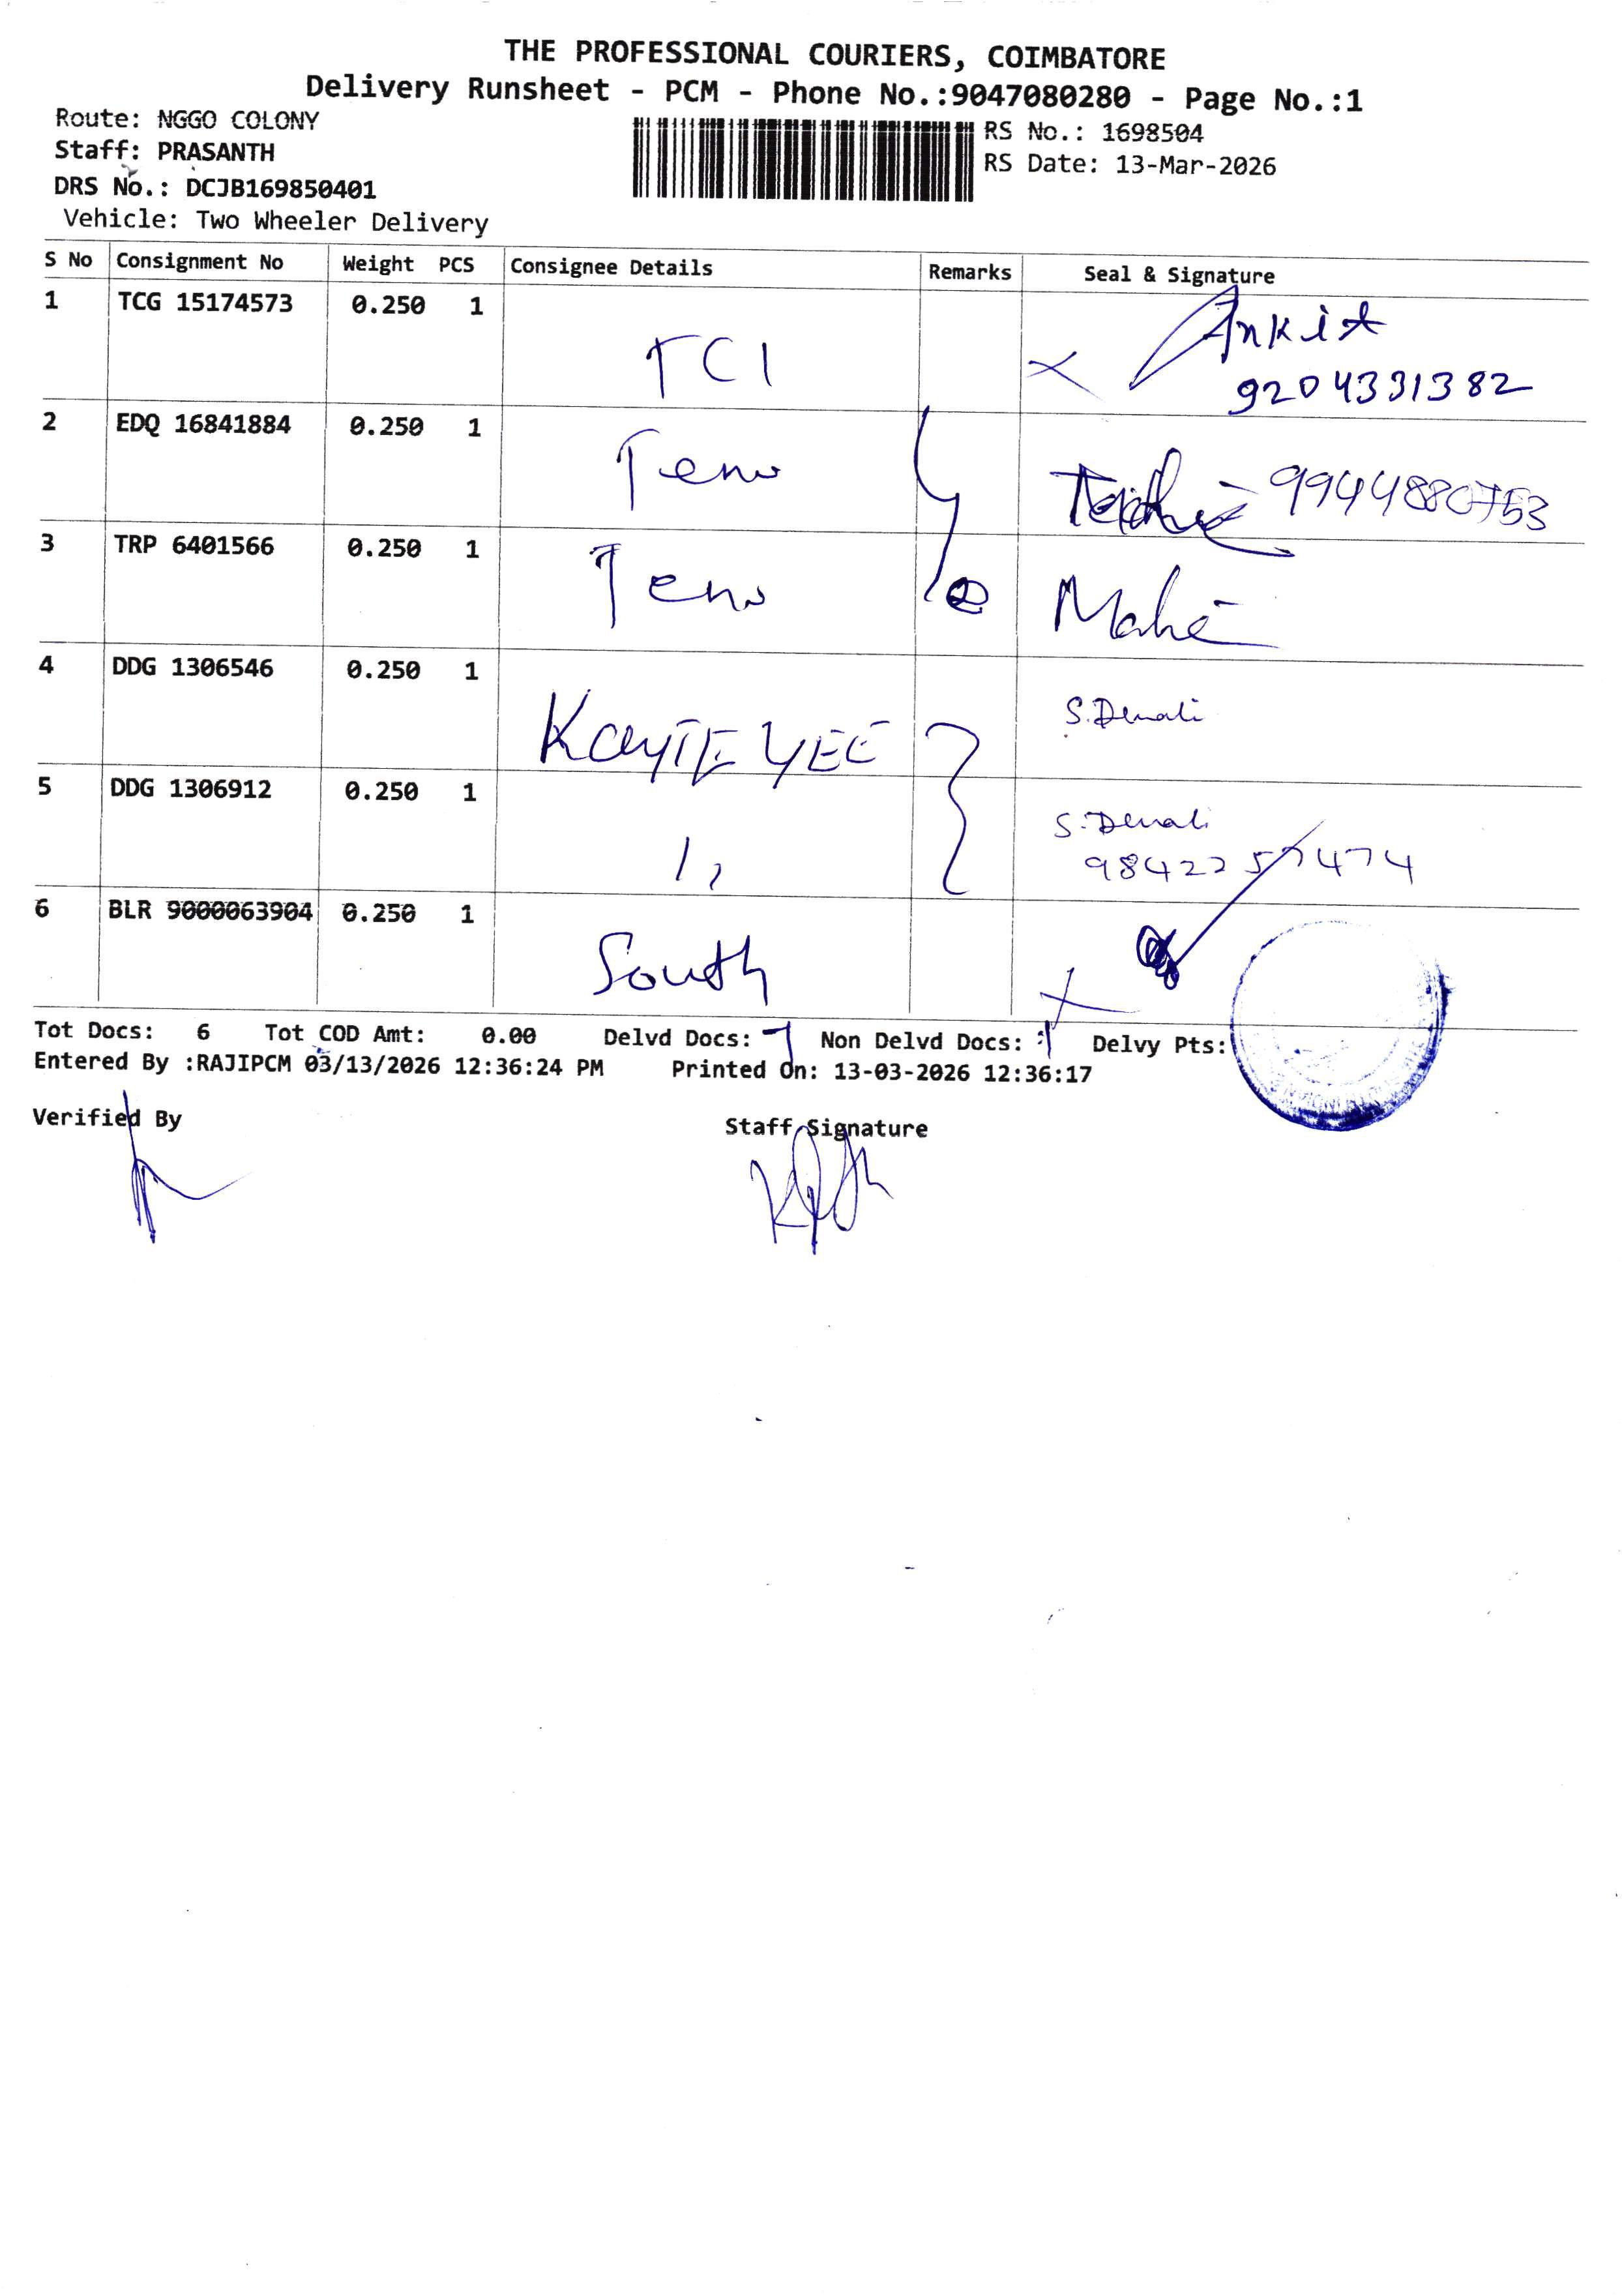 THE PROFESSIONAL COURIERS, COIMBATORE
Delivery Runsheet - PCM - Phone No.:9047080280 - Page No.:1
Route: NGGO COLONY
RS No.: 1698504
Staff: PRASANTH
RS Date: 13-Mar-2026
DRS No.: DCJB169850401
Vehicle: Two Wheeler Delivery
S No Consignment No Weight PCS Consignee Details Remarks Seal & Signature
1 TCG 15174573 0.250 1
TCI Ankit
9204331382
2 EDQ 16841884 0.250 1
9944880753
3 TRP 6401566 0.250 1
4 DDG 1306546 0.250 1
5 DDG 1306912 0.250 1
9842257474
6 BLR 9000063904 0.250 1
South
Tot Docs: 6 Tot COD Amt: 0.00 Delvd Docs: Non Delvd Docs: Delvy Pts:
Entered By :RAJIPCM 03/13/2026 12:36:24 PM Printed On: 13-03-2026 12:36:17
Verified By Staff Signature